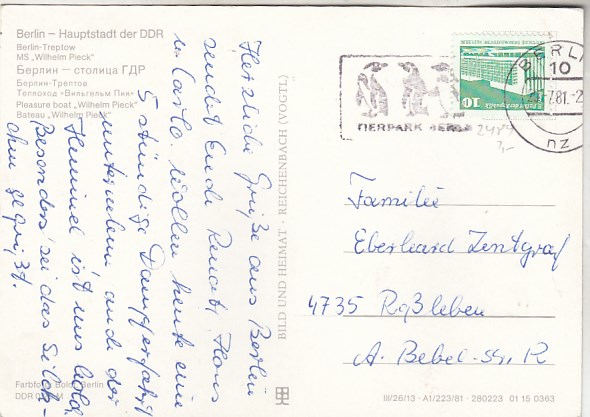 Berlin – Hauptstadt der DDR
Berlin-Treptow
MS „Wilhelm Pieck"
Берлин — столица ГДР
Берлин-Трептов
Теплоход «Вильгельм Пик»
Pleasure boat „Wilhelm Pieck"
Bateau „Wilhelm Pieck"
Herzliche Grüße aus Berlin
sendet Euch Renate, Hans
u. Carlo. Wollen heute eine
5 stündige Dampferfahrt
unternehmen auch der
Himmel ist uns hold,
Besonders sei das Silber-
gegrüßt.
BILD UND HEIMAT · REICHENBACH (VOGTL)
TIERPARK BERLIN
BERLIN
10
7.81.-2
nz
10
2484
3,-
Familie
Eberhard Zentgraf
4735 Roßleben
A. Bebel-Str.
Farbfoto: Berlin
DDR
III/26/13 · A1/223/81 · 280223 01 15 0363